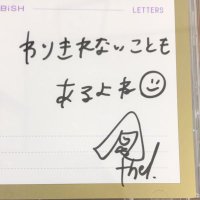 BiSH LETTERS
わりきれないことも
あるよね